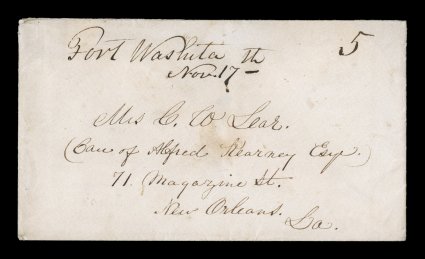 Fort Washita th 5
Nov. 17 -
Mrs C. W Lear.
(Care of Alfred Kearney Esqr.)
71 Magazine St.
New Orleans.
La.